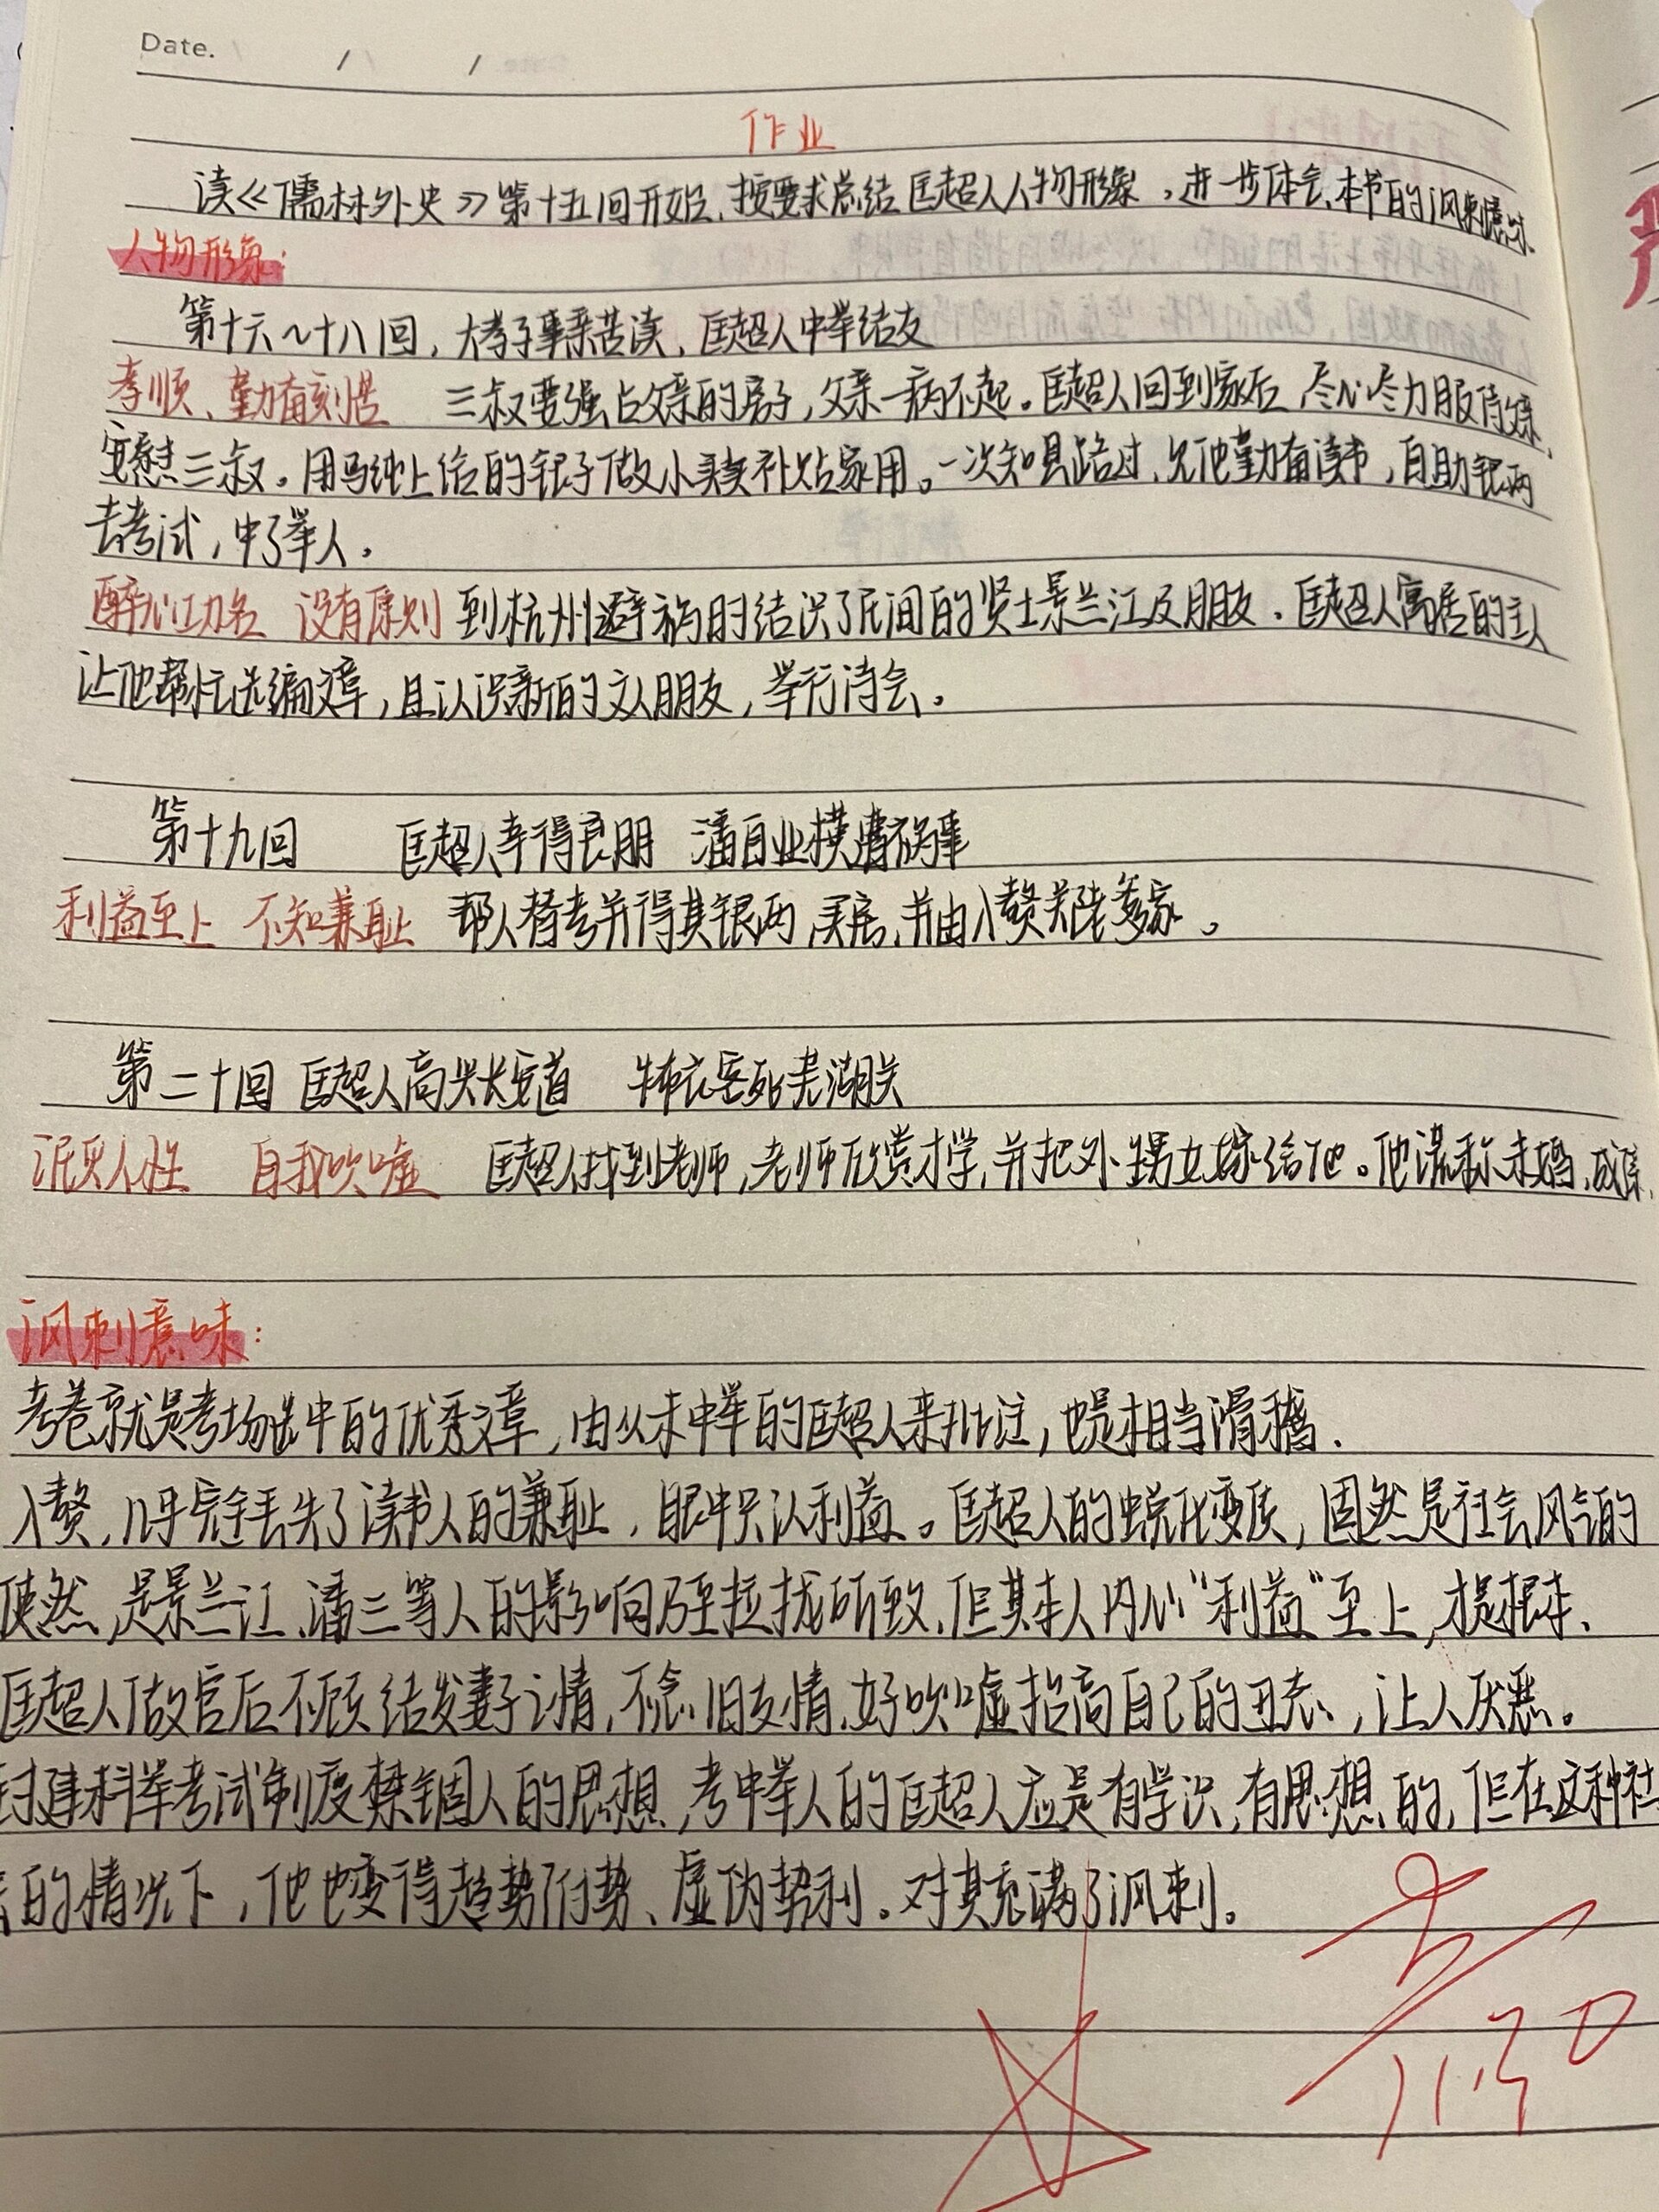 Date. / /
作业
读《儒林外史》第十五回开始,按要求总结匡超人人物形象,进一步体会本书的讽刺意味.
人物形象:
第十六~十八回,大孝子事亲苦读,匡超人中举结友
孝顺、勤奋刻苦 三叔要强占父亲的房子,父亲一病不起。匡超人回到家后 尽心尽力服侍父亲,
安慰三叔。用马纯上给的银子做小买卖补贴家用。一次知县路过,见他勤奋读书,自助银两
去考试,中了举人。
醉心功名 没有原则 到杭州避祸时结识了民间的贤士景兰江及朋友.匡超人寓居的主人
让他帮忙选编文章,且认识新的文人朋友,举行诗会。
第十九回 匡超人幸得良朋 潘自业横遭祸事
利益至上 不知廉耻 帮人替考并得其银两,买房,并由入赘关老爹家。
第二十回 匡超人高兴长安道 牛布衣客死芜湖关
泯灭人性 自我吹嘘 匡超人找到老师,老师欣赏才学,并把外甥女嫁给他。他谎称未婚,成亲.
讽刺意味:
考卷就是考场选中的优秀文章,由从未中举的匡超人来批注,也是相当滑稽.
入赘,几乎完全丢失了读书人的廉耻,眼中只认利益。匡超人的蜕化变质,固然是社会风气的
使然,是景兰江、潘三等人的影响乃至拉拢所致,但其本人内心"利益"至上,才是根本、
匡超人做官后不顾结发妻子之情,不念旧友情,好吹嘘抬高自己的丑态,让人厌恶。
封建科举考试制度禁锢人的思想,考中举人的匡超人应是有学识,有思想的,但在这种社
会的情况下,他也变得趋势附势、虚伪势利。对其充满了讽刺。
11.30